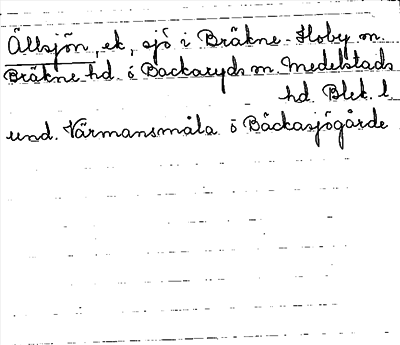 Ällsjön, ek, sjö i Bräkne-Hoby sn.
Bräkne hd. o Backaryds sn. Medelstads
hd. Blek. l.
und. Värmansmåla o Bäckasjögärde